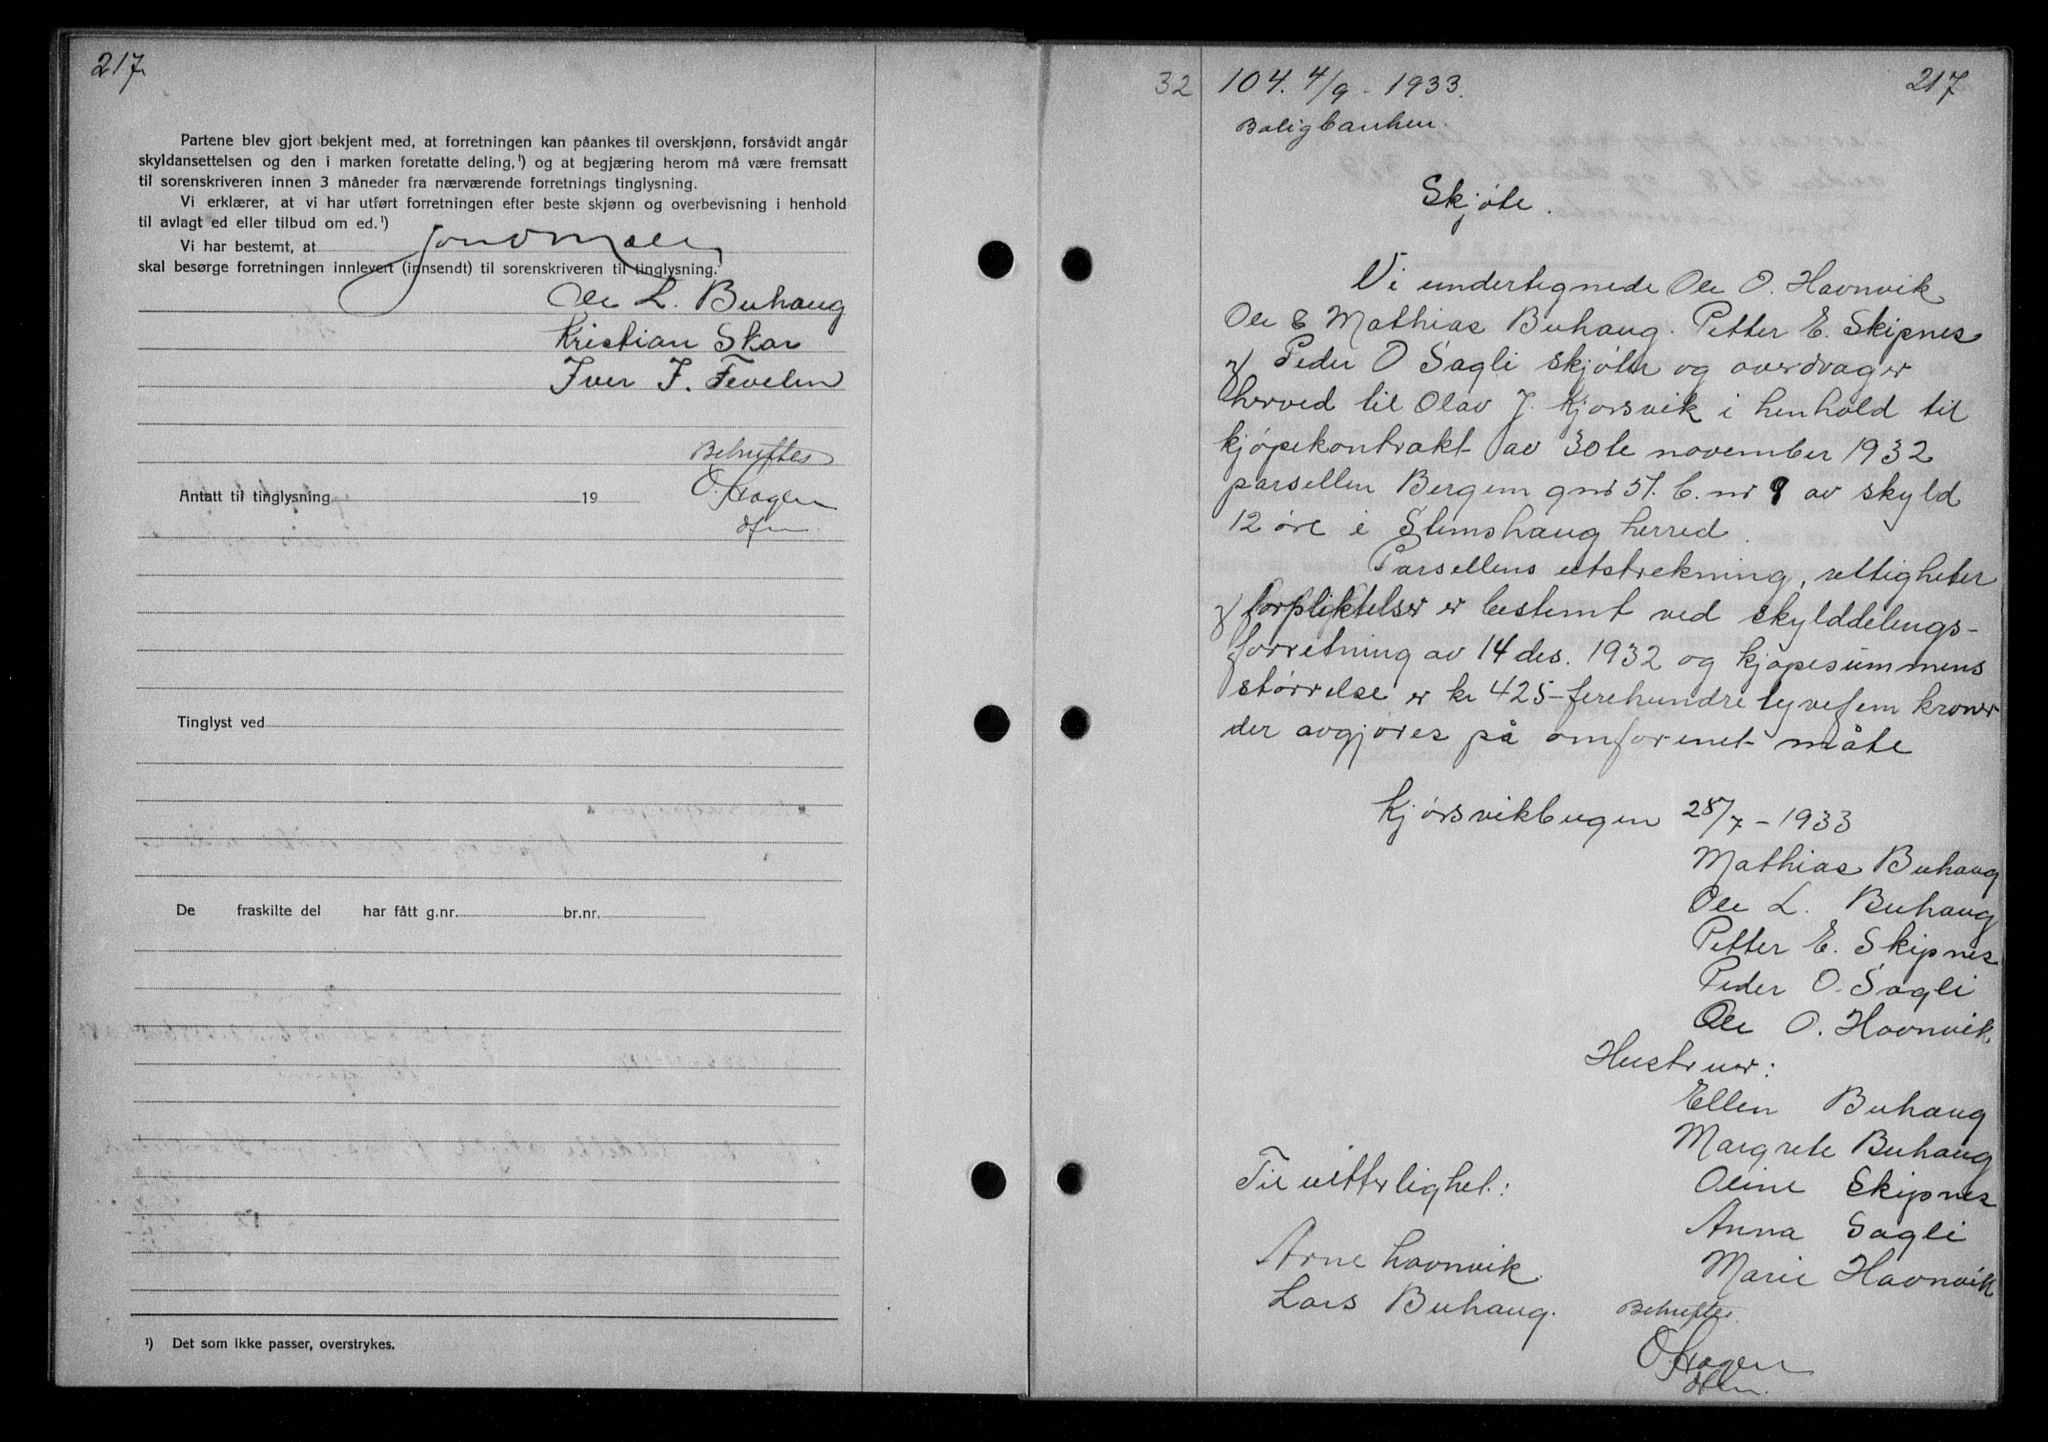 217
Partene blev gjort bekjent med, at forretningen kan påankes til overskjønn, forsåvidt angår
skyldansettelsen og den i marken foretatte deling,¹) og at begjæring herom må være fremsatt
til sorenskriveren innen 3 måneder fra nærværende forretnings tinglysning.
Vi erklærer, at vi har utført forretningen efter beste skjønn og overbevisning i henhold
til avlagt ed eller tilbud om ed.¹)
Vi har bestemt, at
skal besørge forretningen innlevert (innsendt) til sorenskriveren til tinglysning.
Ole L. Buhaug
Kristian Skar
Iver J. Fevelen
Bekreftes
O. Hagen
Antatt til tinglysning 19
Tinglyst ved
De fraskilte del har fått g.nr. br.nr.
¹) Det som ikke passer, overstrykes.
32 104. 4/9 - 1933. 217
Boligbanken.
Skjøte.
Vi undertegnede Ole O. Havnvik
Ole & Mathias Buhaug. Petter E. Skipnes
og Peder O Sagli skjøter og overdrager
herved til Olav J. Kjørsvik i henhold til
kjøpekontrakt av 30te november 1932
parsellen Bergem gnr 51. b.nr 9 av skyld
12 øre i Stemshaug herred.
Parsellens utstrekning, rettigheter
og forpliktelser er bestemt ved skylddelings-
forretning av 14 des. 1932 og kjøpesummens
størrelse er kr 425 - firehundre tyvefem kroner
der avgjøres på omforenet måte
Kjørsvikbugen 28/7 - 1933
Mathias Buhaug
Ole L. Buhaug
Petter E. Skipnes
Peder O. Sagli
Ole O. Havnvik
Hustruer:
Ellen Buhaug
Margrete Buhaug
Oline Skipnes
Anna Sagli
Marie Havnvik
Til vitterlighet:
Arne Havnvik
Lars Buhaug.
Bekreftes
O. Hagen